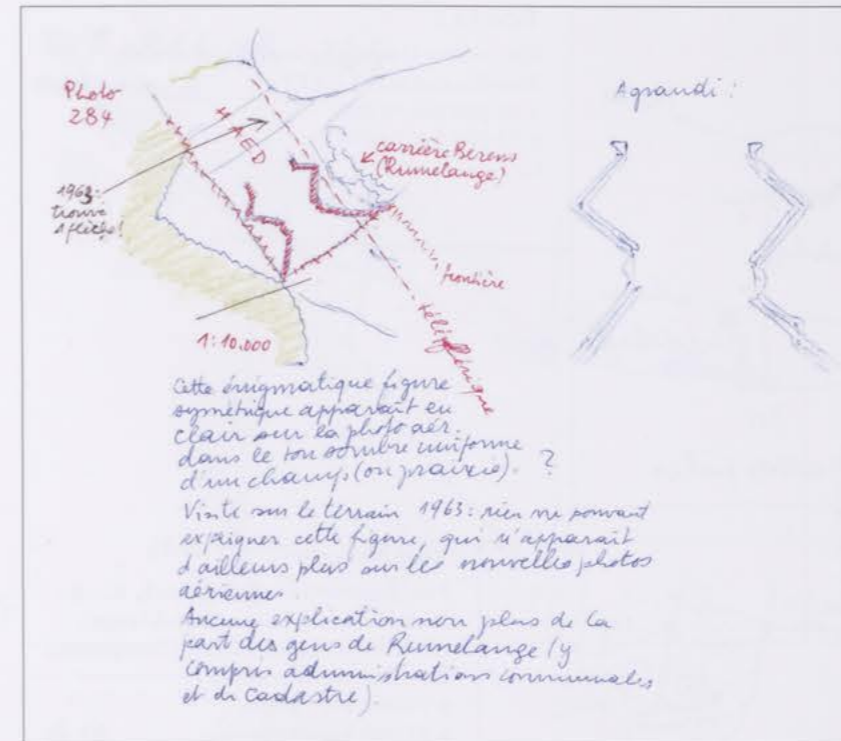 Photo
284
HAED
carrière Berens
(Rumelange)
1963:
trouvé
1 flèche!
frontière
téléférique
1:10.000
Agrandi :
Cette énigmatique figure
symétrique apparait en
clair sur la photo aér.
dans le ton sombre uniforme
d'un champ (ou prairie). ?
Visite sur le terrain 1963: rien ne pouvant
expliquer cette figure, qui n'apparait
d'ailleurs plus sur les nouvelles photos
aériennes.
Aucune explication non plus de la
part des gens de Rumelange (y
compris administrations communales
et du Cadastre).